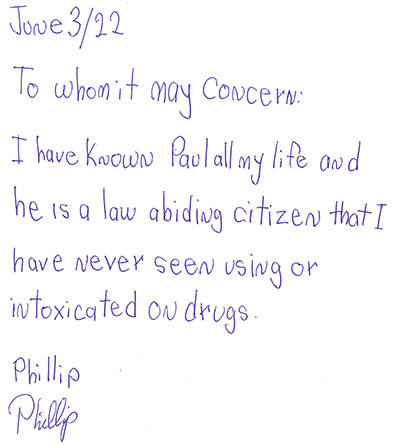 June 3/22
To whom it may concern:
I have known Paul all my life and
he is a law abiding citizen that I
have never seen using or
intoxicated on drugs.
Phillip
Phillip